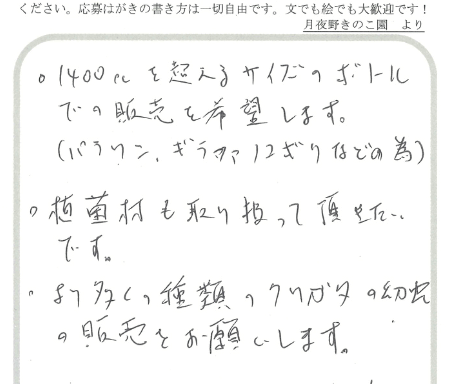 ください。応募はがきの書き方は一切自由です。文でも絵でも大歓迎です！
月夜野きのこ園　より
○1400ccを超えるサイズのボトル
での販売を希望します。
(パラワン、ギラファノコギリなどの為)
○植菌材も取り扱って頂きたい
です。
・より多くの種類のクワガタの幼虫
の販売をお願いします。